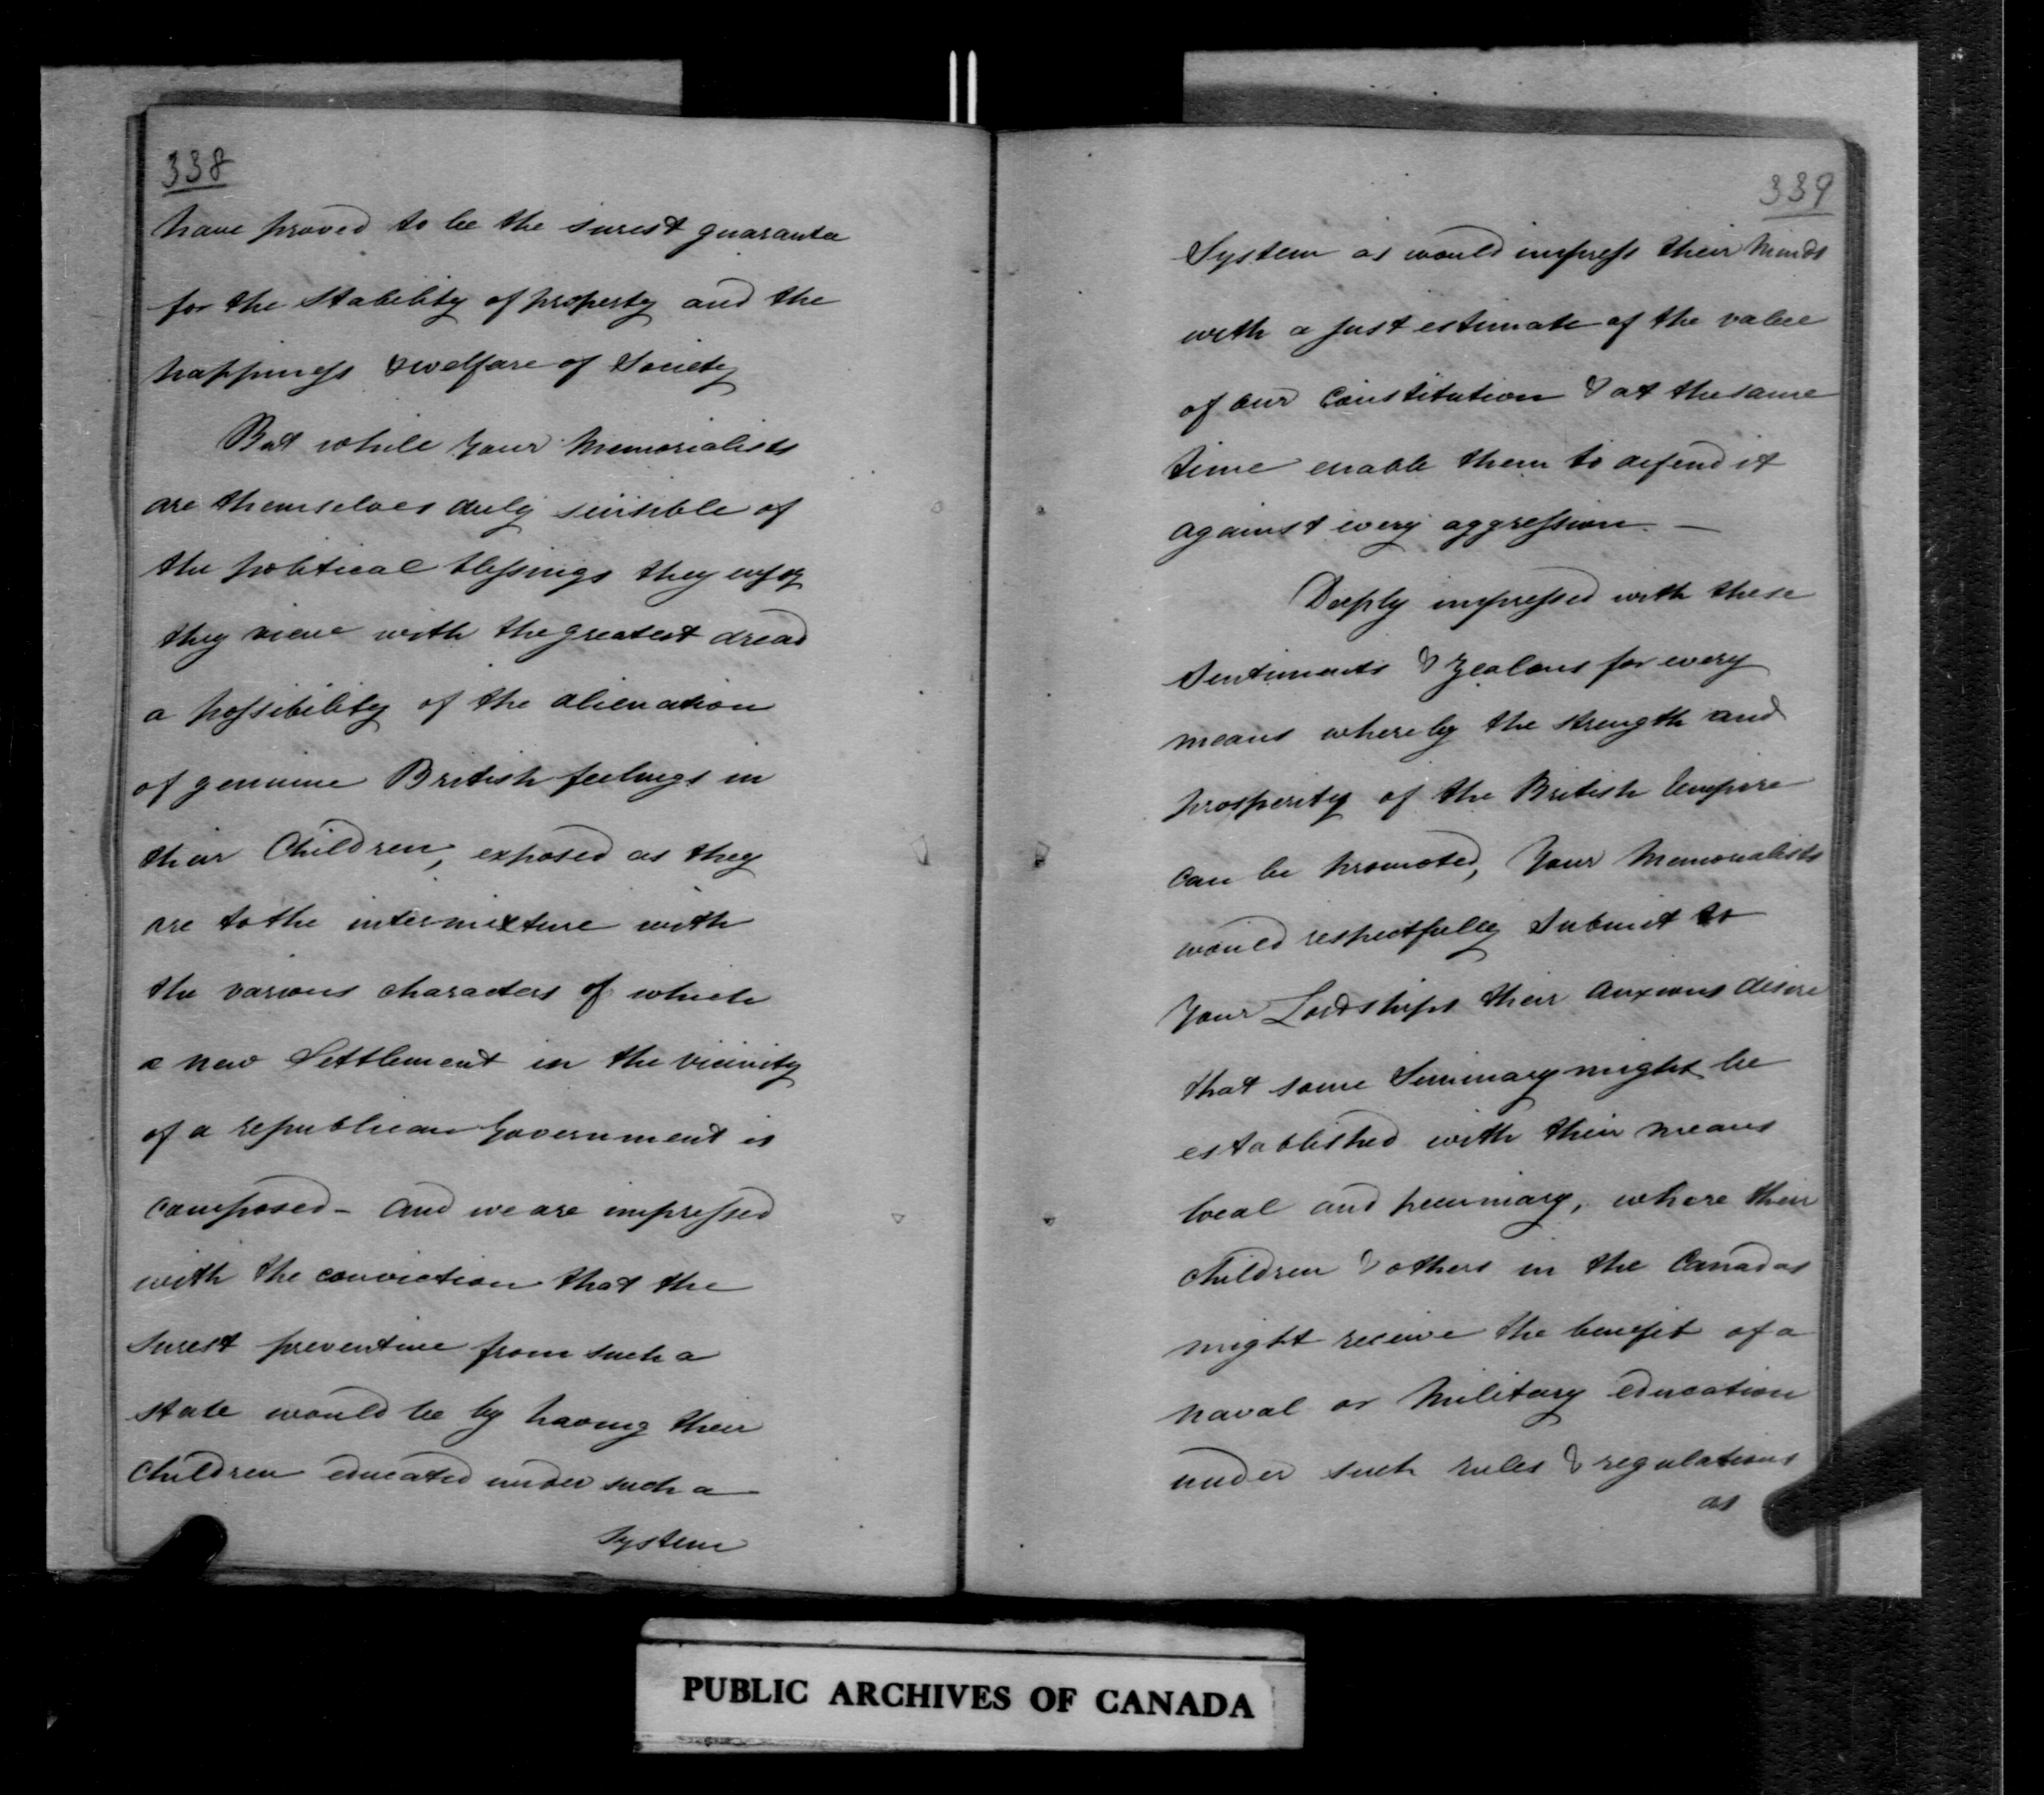 338
have proved to be the surest guarantee
for the Stability of property and the
happiness & welfare of Society
But while Your Memorialists
are themselves duly sensible of
the political blessings they enjoy
they view with the greatest dread
a possibility of the alienation
of genuine British feelings in
their Children, exposed as they
are to the intermixture with
the various characters of which
a new Settlement in the vicinity
of a republican Government is
composed - and we are impressed
with the conviction that the
surest preventive from such a
state would be by having their
Children educated under such a
System
339
System as would impress their Minds
with a just estimate of the value
of our Constitution & at the same
time enable them to defend it
against every aggression. —
Deeply impressed with these
Sentiments & Zealous for every
means whereby the strength and
prosperity of the British Empire
can be promoted, Your Memorialists
would respectfully Submit to
Your Lordships their anxious desire
that some Seminary might be
established with their means
local and pecuniary, where their
children & others in the Canadas
might receive the benefit of a
Naval or Military education
under such rules & regulations
as
PUBLIC ARCHIVES OF CANADA